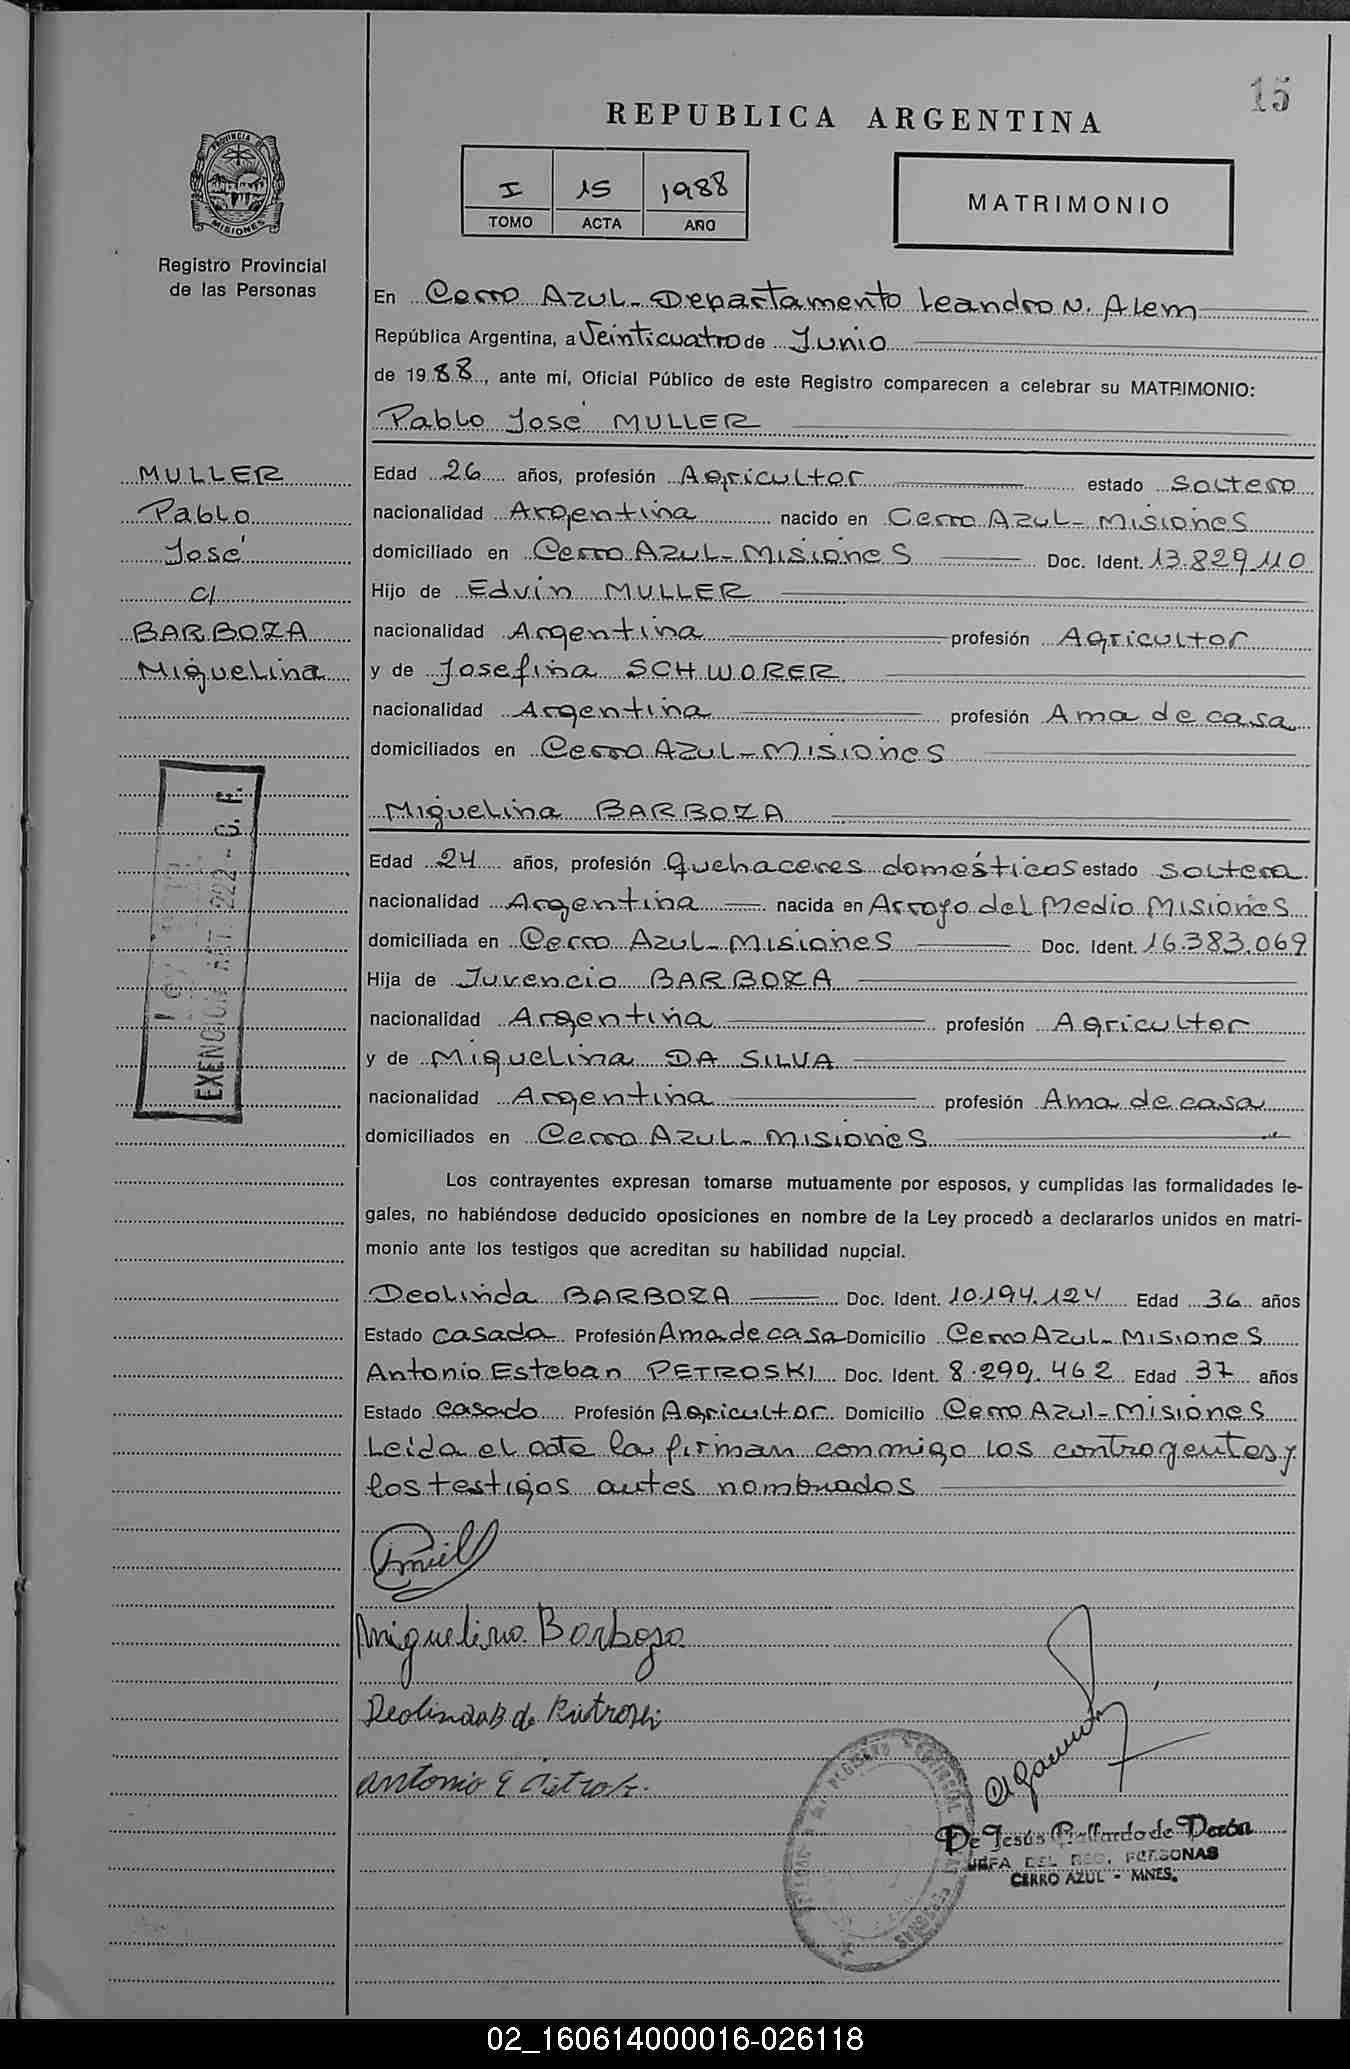 15
REPUBLICA ARGENTINA
PROVINCIA DE
MISIONES
Registro Provincial
de las Personas
I 15 1988
TOMO ACTA AÑO
MATRIMONIO
En Cerro Azul - Departamento Leandro N. Alem
República Argentina, a Veinticuatro de Junio
de 1988, ante mí, Oficial Público de este Registro comparecen a celebrar su MATRIMONIO:
Pablo José MULLER
MULLER
Pablo
José
c/
BARBOZA
Miguelina
Edad 26 años, profesión Agricultor estado Soltero
nacionalidad Argentina nacido en Cerro Azul - Misiones
domiciliado en Cerro Azul - Misiones Doc. Ident. 13.829.110
Hijo de Edvin MULLER
nacionalidad Argentina profesión Agricultor
y de Josefina SCHWORER
nacionalidad Argentina profesión Ama de casa
domiciliados en Cerro Azul - Misiones
Miguelina BARBOZA
Edad 24 años, profesión Quehaceres domésticos estado soltera
nacionalidad Argentina nacida en Arroyo del Medio Misiones
domiciliada en Cerro Azul - Misiones Doc. Ident. 16.383.069
Hija de Juvencio BARBOZA
nacionalidad Argentina profesión Agricultor
y de Miguelina DA SILVA
nacionalidad Argentina profesión Ama de casa
domiciliados en Cerro Azul - Misiones
EXENCION ART. 222
Los contrayentes expresan tomarse mutuamente por esposos, y cumplidas las formalidades le-
gales, no habiéndose deducido oposiciones en nombre de la Ley procedò a declararlos unidos en matri-
monio ante los testigos que acreditan su habilidad nupcial.
Deolinda BARBOZA Doc. Ident. 10.194.124 Edad 36 años
Estado casada Profesión Ama de casa Domicilio Cerro Azul - Misiones
Antonio Esteban PETROSKI Doc. Ident. 8.299.462 Edad 37 años
Estado casado Profesión Agricultor Domicilio Cerro Azul - Misiones
Leída el acta la firman conmigo los contrayentes y
los testigos antes nombrados
Miguelina Barboza
Deolinda B de
Antonio E
De Jesús Gallardo de Perón
JEFA DEL REG. PERSONAS
CERRO AZUL - MNES.
02_160614000016-026118